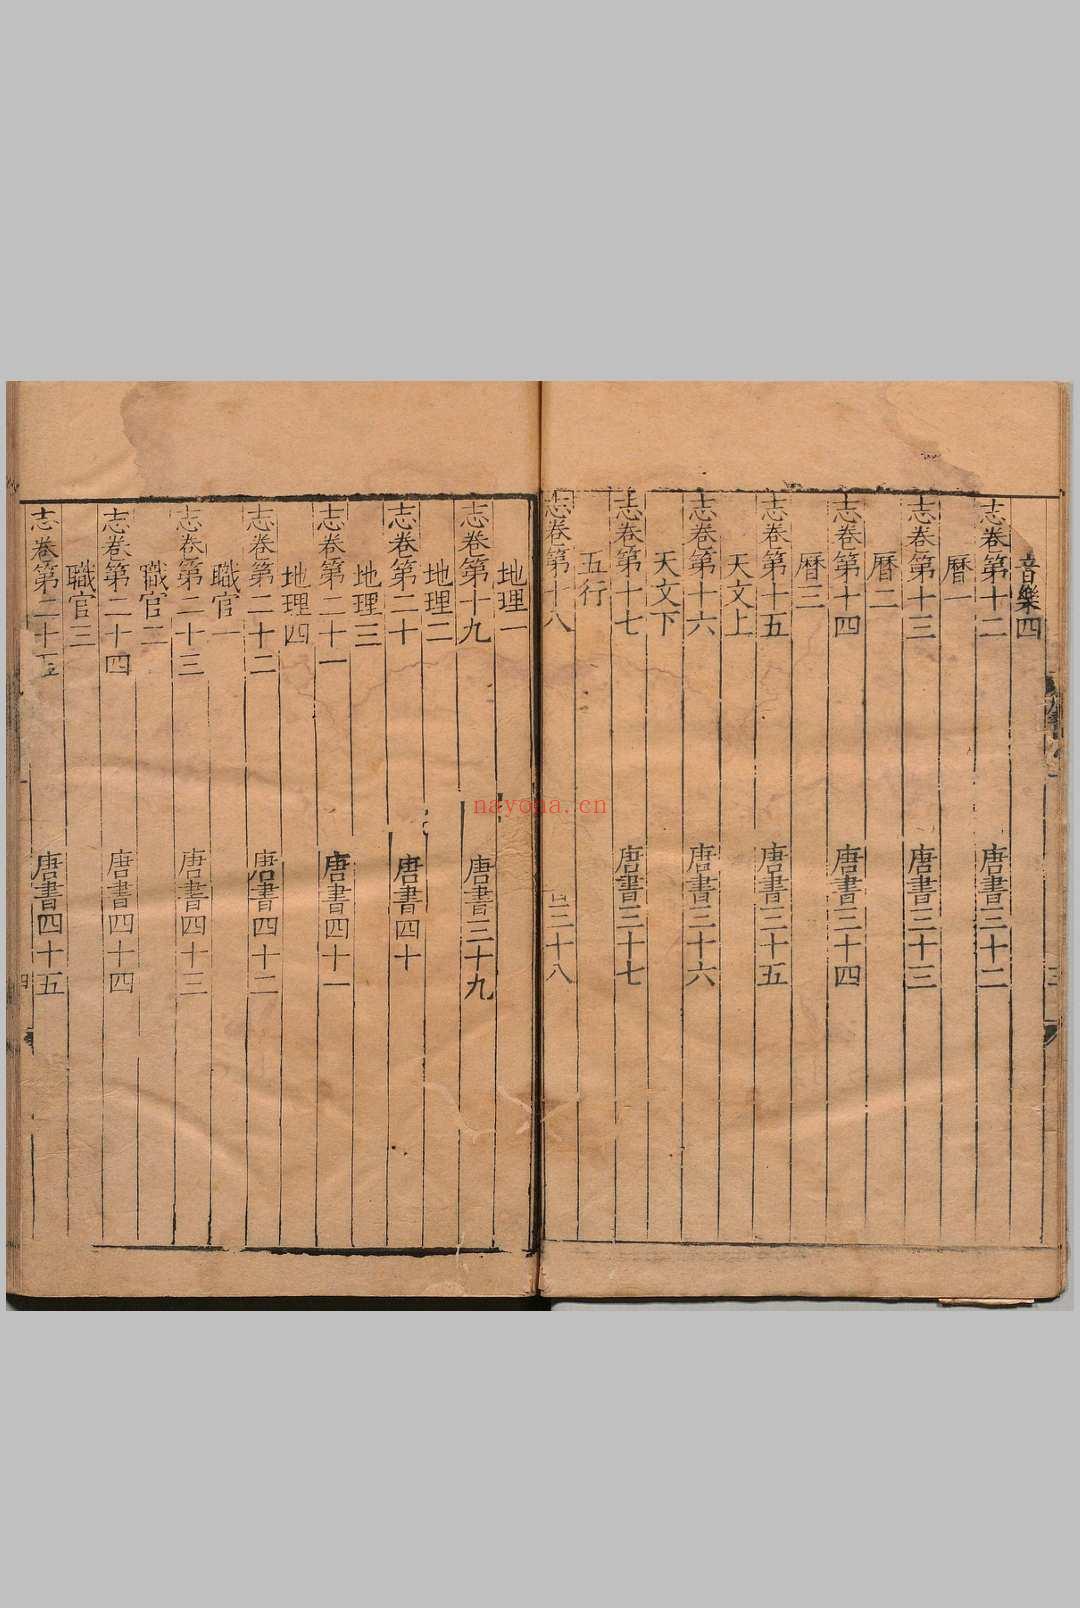 音樂四
志卷第十二 唐書三十二
曆一
志卷第十三 唐書三十三
曆二
志卷第十四 唐書三十四
曆三
志卷第十五 唐書三十五
天文上
志卷第十六 唐書三十六
天文下
志卷第十七 唐書三十七
五行
志卷第十八 三十八
地理一
志卷第十九 唐書三十九
地理二
志卷第二十 唐書四十
地理三
志卷第二十一 唐書四十一
地理四
志卷第二十二 唐書四十二
職官一
志卷第二十三 唐書四十三
職官二
志卷第二十四 唐書四十四
職官三
志卷第二十五 唐書四十五
nayona.cn